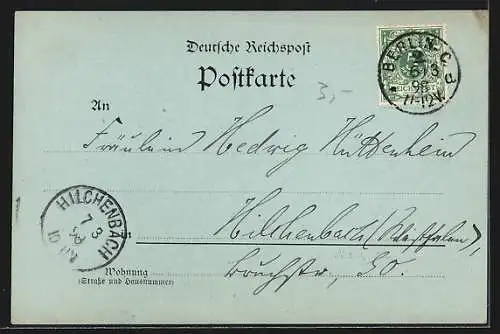 Deutsche Reichspost
Postkarte
BERLIN. C
2
6/3
98
11-12V.
3,-
An
Fräulein Hedwig Hüttenhein
HILCHENBACH
7
3
98
in Hilchenbach (Westfalen),
Bruchstr,
Wohnung
(Straße und Hausnummer)